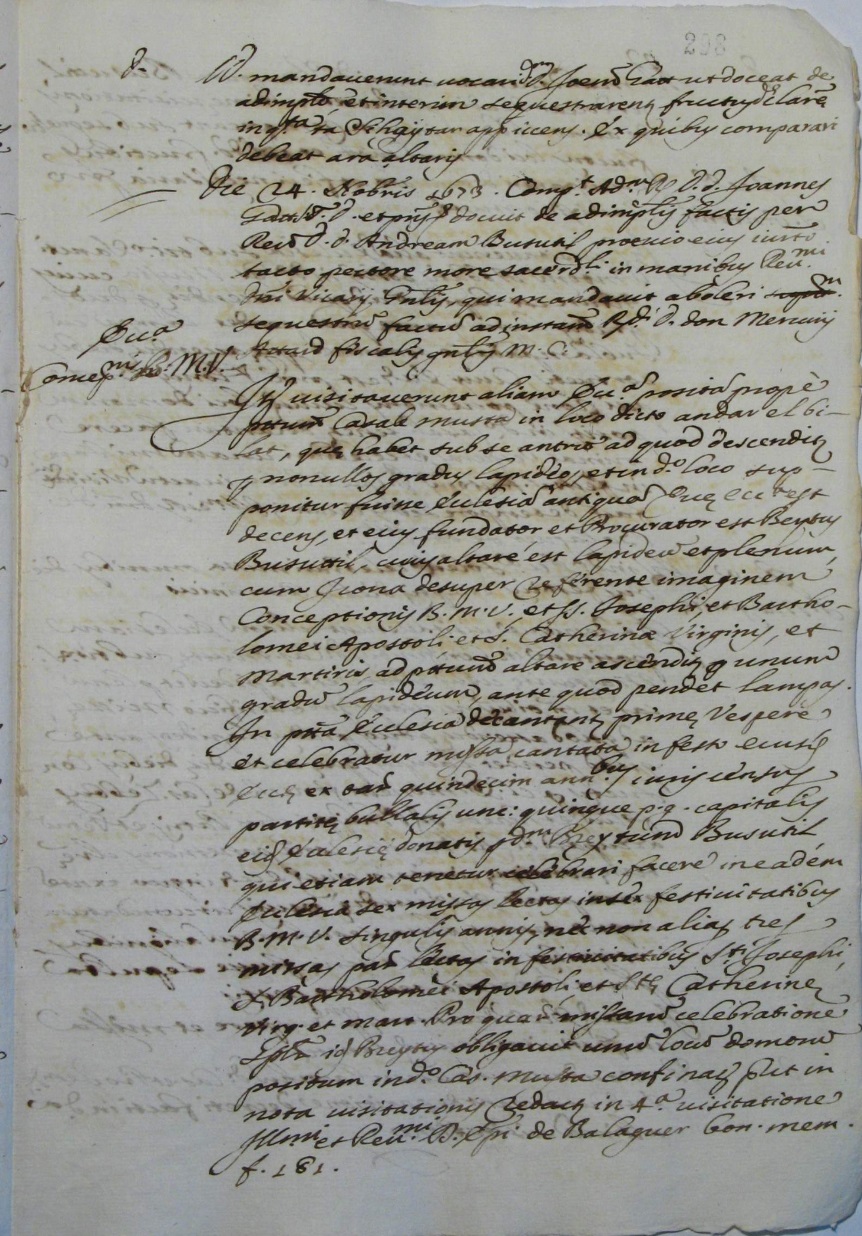 298
d.
D. mandaverunt vocari D. Joem Gatt ut doceat de
adimplõ et interim sequestrarentʒ fructus clare
in qta ta Sihajtar appicens. Ex quibus comparari
debeat ara altaris
Die 24. Xobris 1673. Compt Adm R D. d. Joannes
Gatt et docuit de adimplis factis per
Reud D. d. Andream Busutil procuro eius
tacto pectore more sacerdli in manibus Reumi
Dni Vicarij Gnlis, qui mandavit aboleri
sequestru factu ad instam Rdi D. don Mercurij
fiscalis gnlis M. C.
Ecca
Concepnis Be. M. V.
Itʒ visitaverunt aliam Ecca posita prope
pntum Casale musta in loco dicto andar el bi-
lat, que habet sub se antru ad quod descenditʒ
p nonullos gradus lapideos, et in do loco sup-
ponitur fuisse Ecclesia antiqua Que Ecca est
decens, et eius fundator et Procurator est Beptus
Busuttil, cuius altare est lapideu et plenum,
cum Icona desuper referente imaginem
Conceptionis B. M. V., et SS. Josephi, et Bartho-
lomei Apostoli et S. Catherinæ Virginis, et
Martiris, ad pntum altare ascenditʒ p unum
gradu lapideum, ante quod pendet lampas.
In pnta Ecclesia decantantʒ prime Vespere
et celebratur missa cantata in festo eiusd
Ecce ex quindecim annbus iuris census
partite bullalis unc: quinque p. g. capitalis
eid Ecclesie donatis pdm Beptum Busutil
qui etiam tenetur celebrari facere in eadem
Ecclesia sex missas lectas in sex festivitatibus
B. M. V. singulis annis, nec non alias tres
missas par lectas in festivitatibus Sti Josephi,
S. Bartholomei Apostoli et Ste Catherine
Virg. et mart. Pro quar missaru celebratione
id Beptus obligavit unu locu domoru
positum in do Cas. musta confinas put in
nota visitationis redacta in 4a visitatione
Illmi et Reumi D. Epi de Balaguer bon. mem.
f. 181.